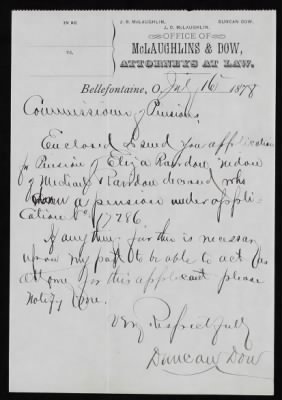 IN RE
TO.
J. R. McLAUGHLIN. DUNCAN DOW.
J. D. McLAUGHLIN.
OFFICE OF
McLAUGHLINS & DOW,
ATTORNEYS AT LAW.
Bellefontaine, O. July 16 1878
Commissioner of Pensions,
Enclosed I send you application
for Pension of Eliza Rairdon, widow
of Rairdon deceased who
a pension under appli-
cation No. 17286
If any thing further is necessary
upon my part to be able to act as
attorney for this applicant please
notify me.
Very Respectfully
Duncan Dow